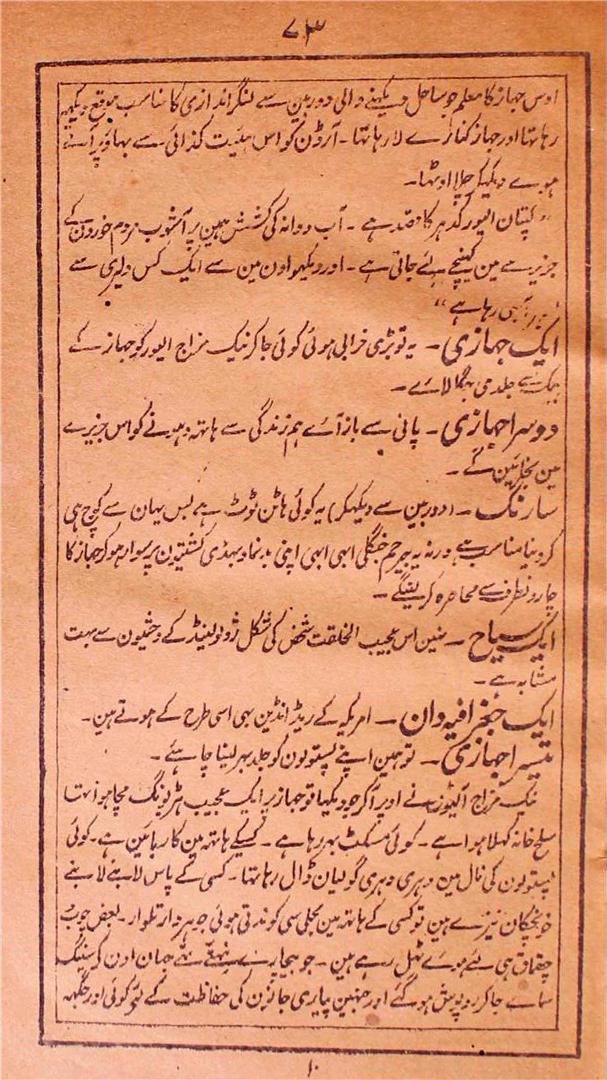 ۷۳
اوس جہاز کا معلم جو ساحل دیکہنے والی دوربین سے لنگر اندازی کا مناسب موقع دیکہہ
رہا تہا اور جہاز کنارے لا رہا تہا۔ آرڈن کو اس ہیئت کذائی سے بہاؤ پر آتے
ہوے دیکہکر چلا اوٹہا۔
"کپتان الیور کدہر کا قصد ہے۔ آب و دانہ کی کشش ہمین پر آشوب مردم خورون کے
جزیرے مین کہینچے لئے جاتی ہے۔ اور دیکہو اون مین سے ایک کس دلیری سے
آ بہی رہا ہے"
ایک جہازی۔ یہ تو بڑی خرابی ہوئی کوئی جا کر نیک مزاج الیور کو جہاز کے
سے جلدی جگا لاے۔
دوسرا جہازی۔ پانی سے باز آے ہم زندگی سے ہاتہہ دہونے کو اس جزیرے
مین گے۔
سارنگ۔ (دوربین سے دیکہکر) یہ کوئی ہاٹن ٹوٹ ہے بس یہان سے کوچ ہی
کر دینا مناسب ہے ورنہ یہ بیرحم جنگلی ابہی ابہی اپنی بدنما و بہدی کشتیون پر سوار ہو کر جہاز کا
چارونطرف سے محاصرہ کر لینگے۔
ایک سیاح۔ مین اس عجیب الخلقت شخص کی شکل ژولولینڈ کے وحشیون سے بہت
مشابہ ہے۔
ایک جغرافیہ دان۔ امریکہ کے ریڈ انڈین بہی اسی طرح کے ہوتے ہین۔
تیسرا جہازی۔ تو ہمین اپنے پستولون کو جلد بہر لینا چاہئے۔
نیک مزاج الیور نے اوپر آکر جو دیکہا تو جہاز پر ایک عجیب ہڑبونگ مچا ہوا تہا
سلح خانہ کہلا ہوا ہے۔ کوئی مسکٹ بہر رہا ہے۔ کسیکے ہاتہہ مین کاربائین ہے۔ کوئی
پستولون کی نال مین دہری دہری گولیان ڈال رہا تہا۔ کسی کے پاس لانبے لانبے
خونچکان نیزے ہین تو کسی کے ہاتہہ مین بجلی سی کوندتی ہوئی جوہردار تلوار۔ بعض چوب
چقماق ہی لئے ہوے ٹہل رہے ہین۔ جو بیچارے نہتے تہے جہان اون کے سینگ
سماے جا کر روپوش ہو گئے اور جنہین پیاری جانون کی حفاظت کے لئے کوئی اور جگہہ
۱۰